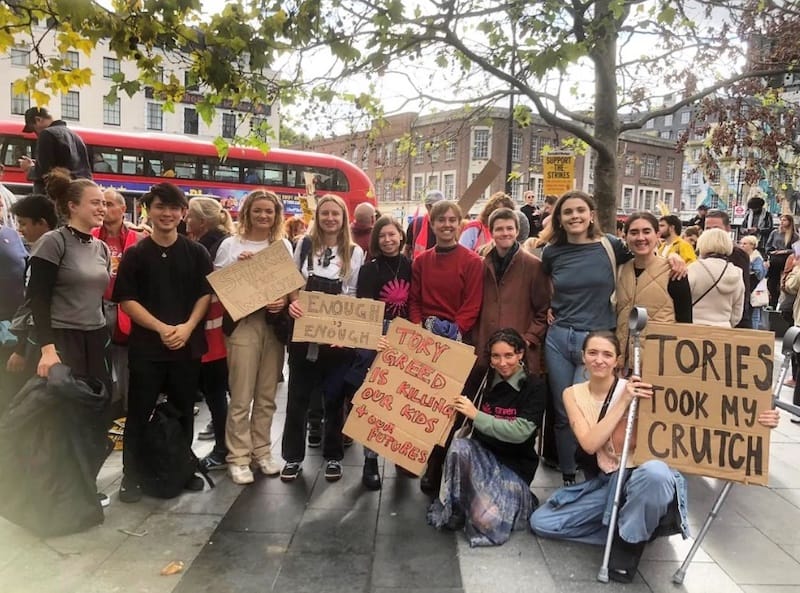 SUPPORT
THE
STRIKES
ENOUGH
IS
ENOUGH
TORY
GREED
IS KILLING
OUR KIDS
+ OUR
FUTURES
TORIES
TOOK MY
CRUTCH